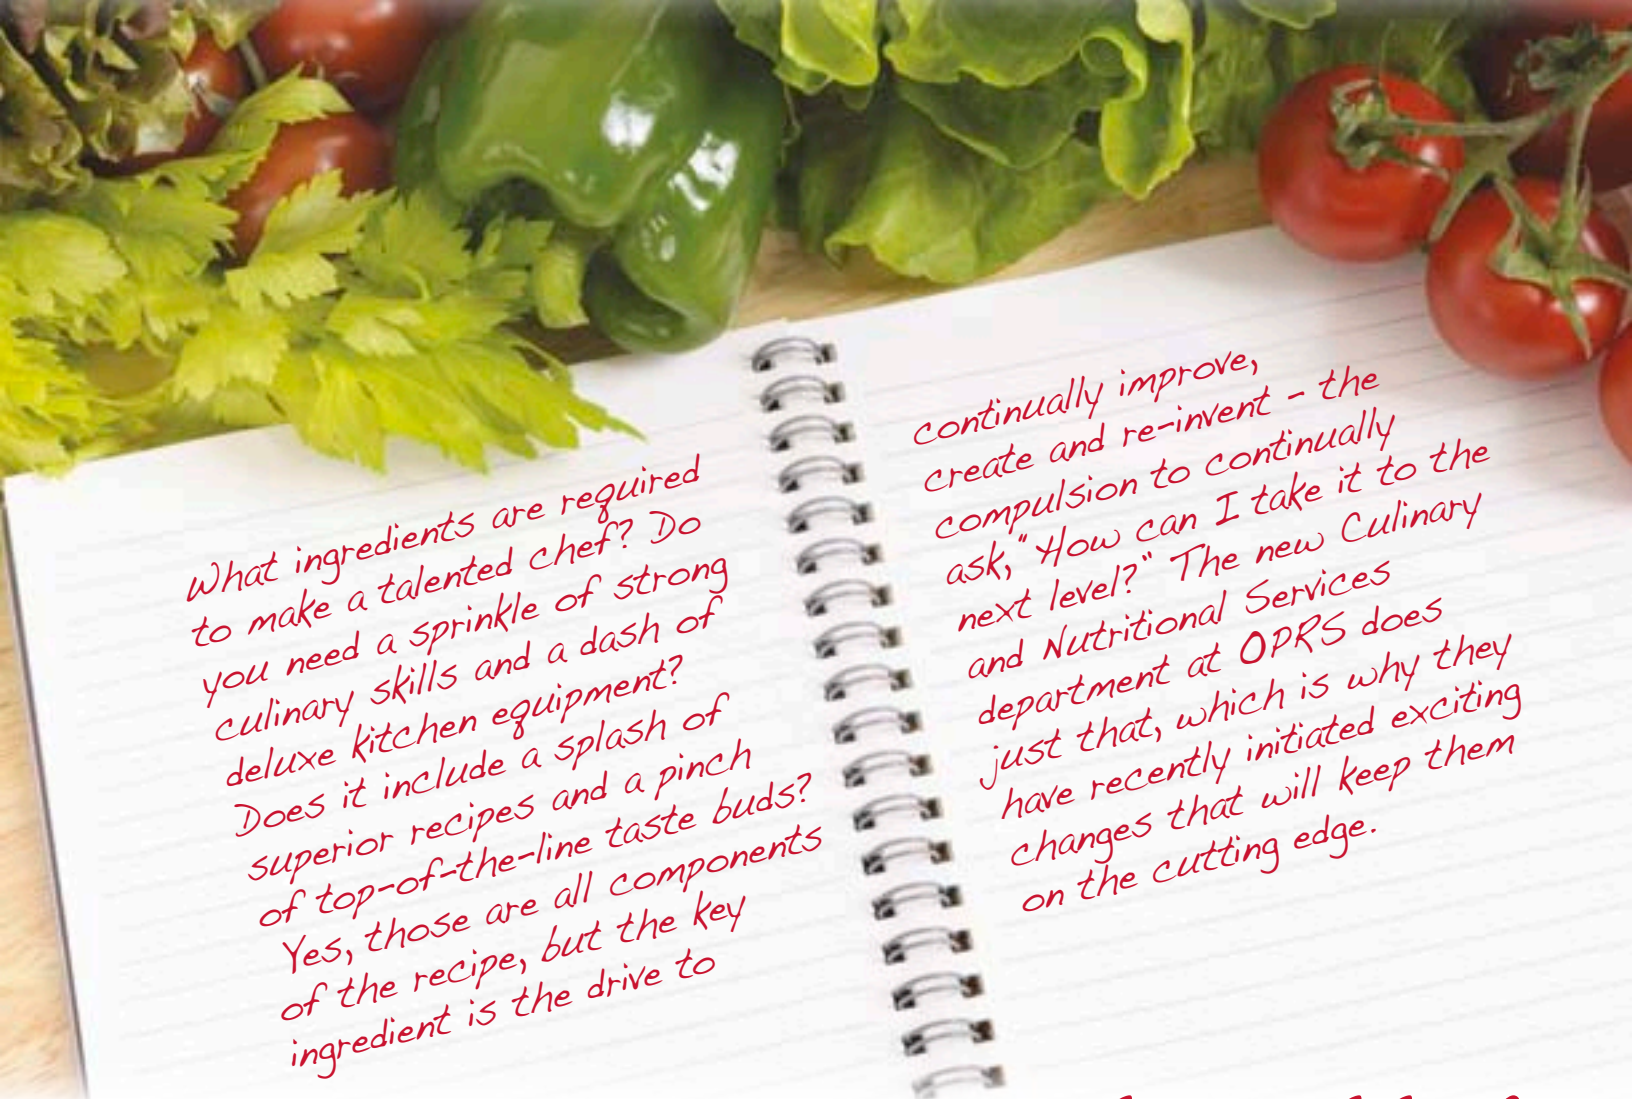 What ingredients are required
to make a talented chef? Do
you need a sprinkle of strong
culinary skills and a dash of
deluxe kitchen equipment?
Does it include a splash of
superior recipes and a pinch
of top-of-the-line taste buds?
Yes, those are all components
of the recipe, but the key
ingredient is the drive to
continually improve,
create and re-invent - the
compulsion to continually
ask, "How can I take it to the
next level?" The new Culinary
and Nutritional Services
department at OPRS does
just that, which is why they
have recently initiated exciting
changes that will keep them
on the cutting edge.